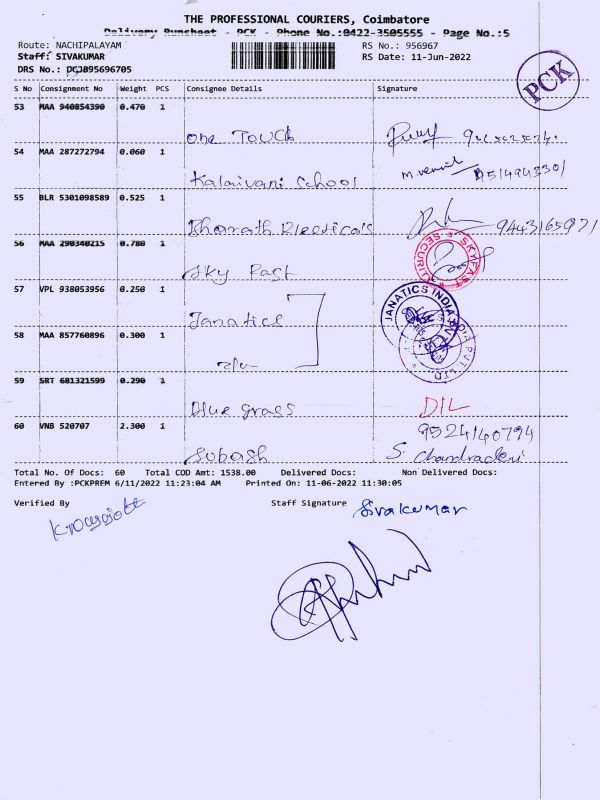 THE PROFESSIONAL COURIERS, Coimbatore
Delivery Runsheet - PCK - Phone No.:0422-3505555 - Page No.:5
Route: NACHIPALAYAM RS No.: 956967
Staff: SIVAKUMAR RS Date: 11-Jun-2022
DRS No.: DCJ895696705
PCK
S No Consignment No Weight PCS Consignee Details Signature
53 MAA 940854390 0.470 1
One Touch
54 MAA 287272794 0.060 1
Kalaivani School
55 BLR 5301098589 0.525 1
Bharath 9443165971
56 MAA 290340215 0.780 1
Sky Fast
SKYFAST SECURITY
57 VPL 938053956 0.250 1
Janatics
JANATICS INDIA PVT LTD
58 MAA 857760896 0.300 1
59 SRT 681321599 0.290 1
Blue grass DIL
60 VNB 520707 2.300 1 9524140794
Subash S. Chandradevi
Total No. Of Docs: 60 Total COD Amt: 1538.00 Delivered Docs: Non Delivered Docs:
Entered By :PCKPREM 6/11/2022 11:23:04 AM Printed On: 11-06-2022 11:30:05
Verified By Staff Signature Sivakumar